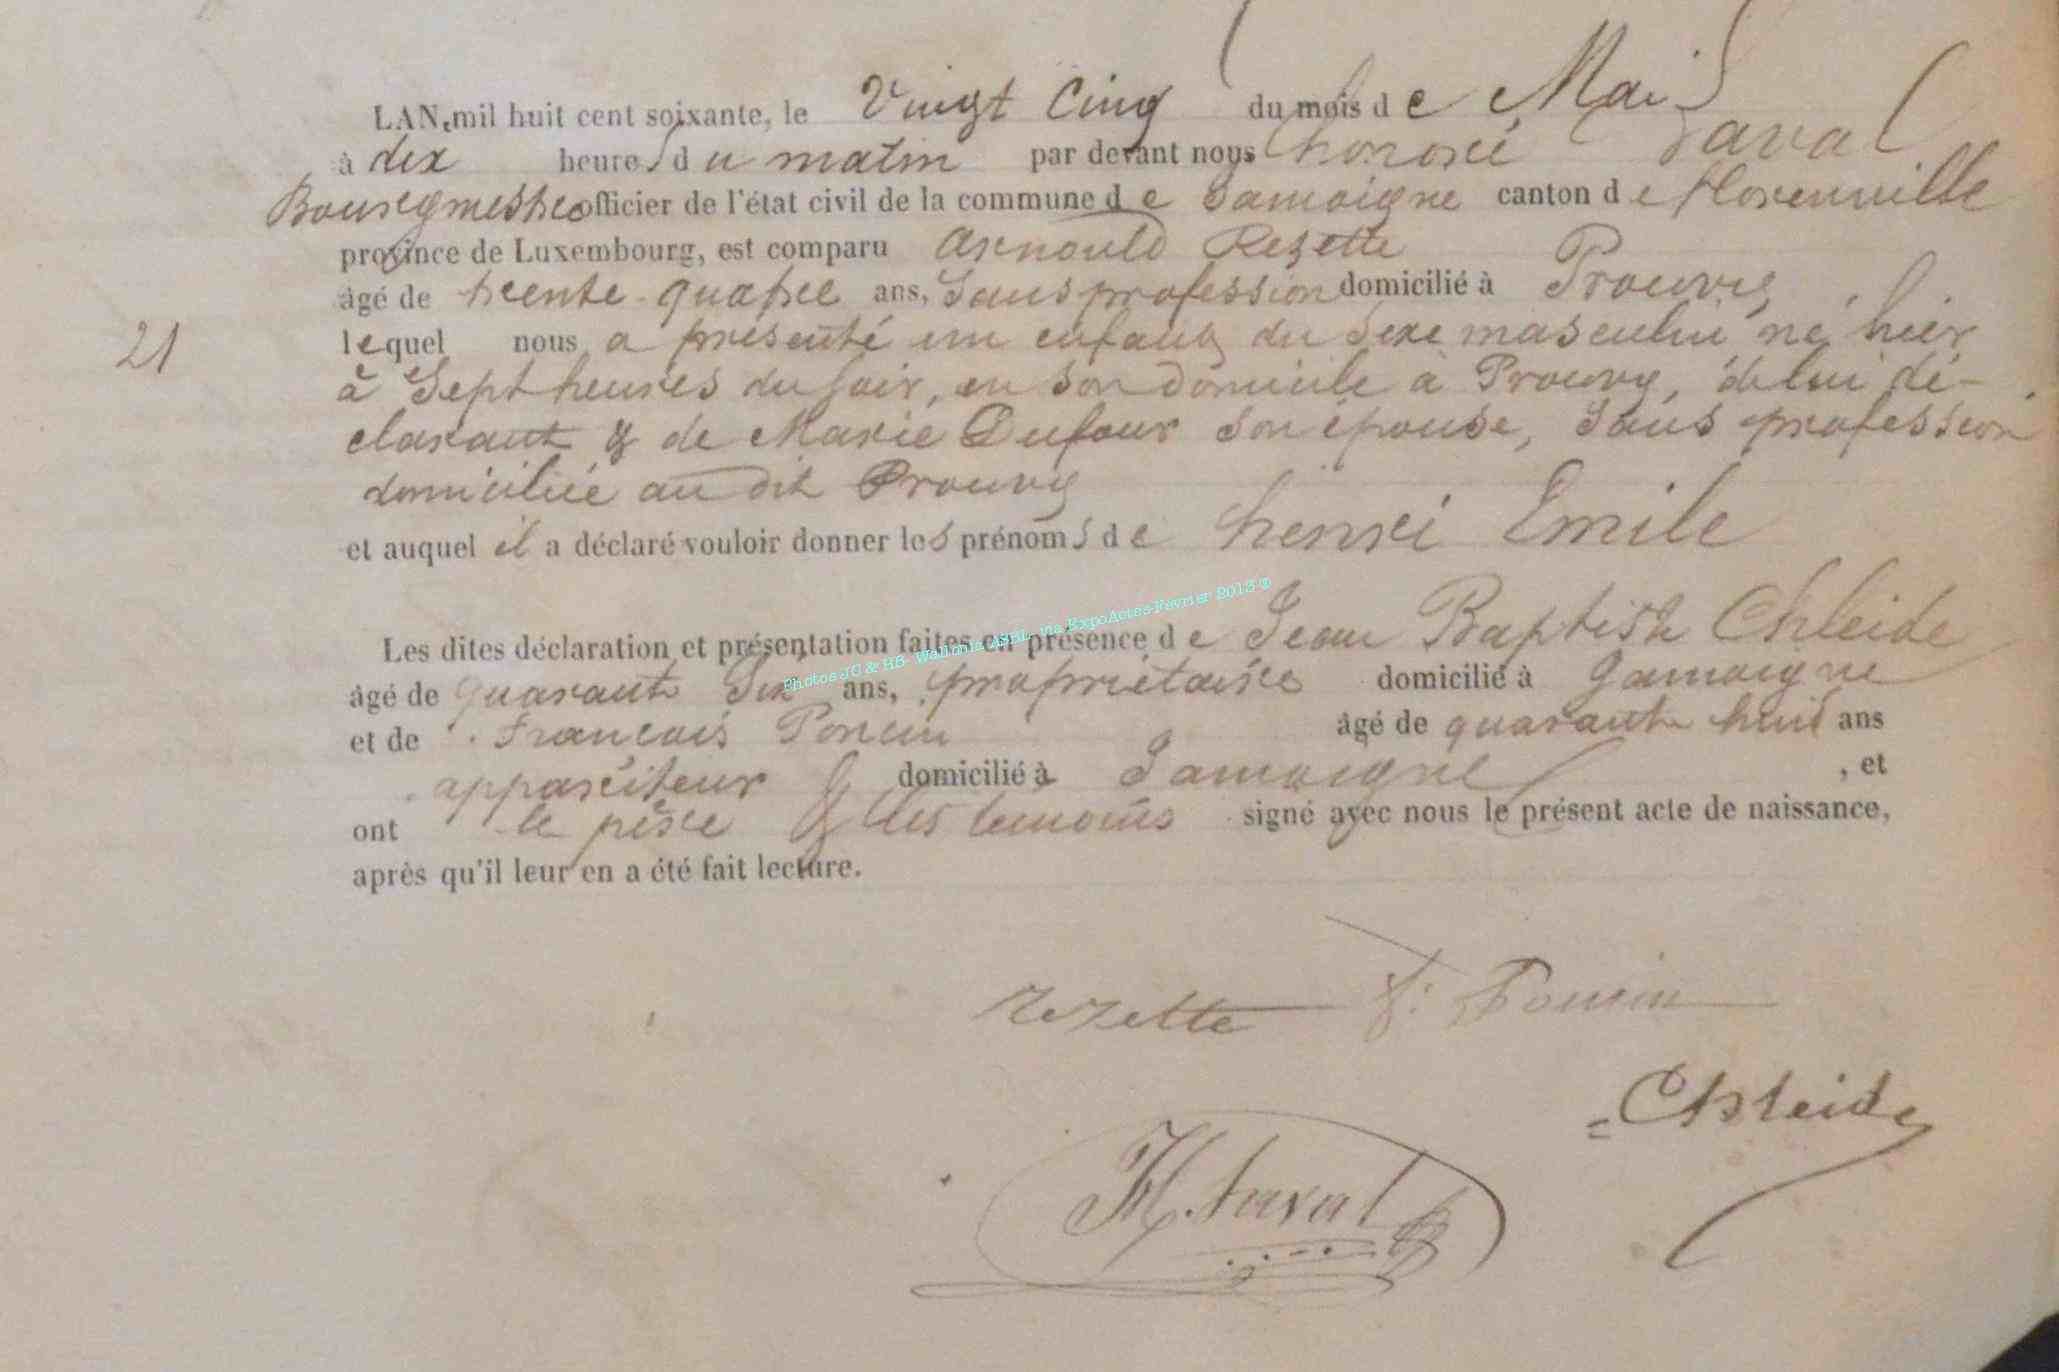 LAN mil huit cent soixante, le Vingt Cinq du mois de Mai
à dix heures du matin par devant nous honoré Laval
Bourgmestre officier de l'état civil de la commune de Jamoigne canton de florenville
province de Luxembourg, est comparu Arnould Rezette
âgé de trente-quatre ans, Sans profession domicilié à Prouvy,
lequel nous a présenté un enfant du Sexe masculin né hier
à Sept heures du Soir, en son domicile à Prouvy, de lui dé-
clarant & de Marie Dufour Son épouse, Sans profession
domiciliée au dit Prouvy
et auquel il a déclaré vouloir donner les prénoms de henri Emile
Les dites déclaration et présentation faites en présence de Jean Baptiste Chleide
Photos JC & HB- Wallonia ASBL via ExpoActes-Février 2013 ©
21
âgé de quarante Six ans, propriétaire domicilié à Jamoigne
et de François Poncin âgé de quarante huit ans
appariteur domicilié à Jamoigne, et
ont le père & les temoins signé avec nous le présent acte de naissance,
après qu'il leur en a été fait lecture.
Rezette F. Poncin
Chleide
H. Laval